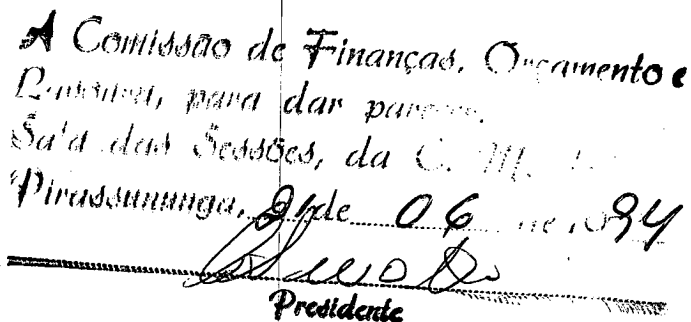 A Comissão de Finanças, Orçamento e
Lavoura, para dar parecer.
Sala das Sessões, da C. M.
Pirassununga, 21 de 06 de 1994
Presidente